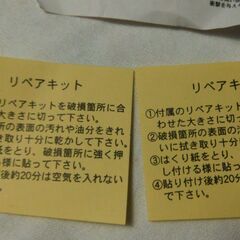 衝撃を与え
リペアキット
リペアキットを破損箇所に合
大きさに切って下さい。
所の表面の汚れや油分をきれ
き取り十分に乾かして下さい。
紙をとり、破損箇所に強く押
る様に貼って下さい。
後約20分は空気を入れない
さい。
リペアキ
①付属のリペアキッ
わせた大きさに切っ
②破損箇所の表面の
いに拭き取り十分に
③はくり紙をとり、
し付ける様に貼って
④貼り付け後約20分
で下さい。